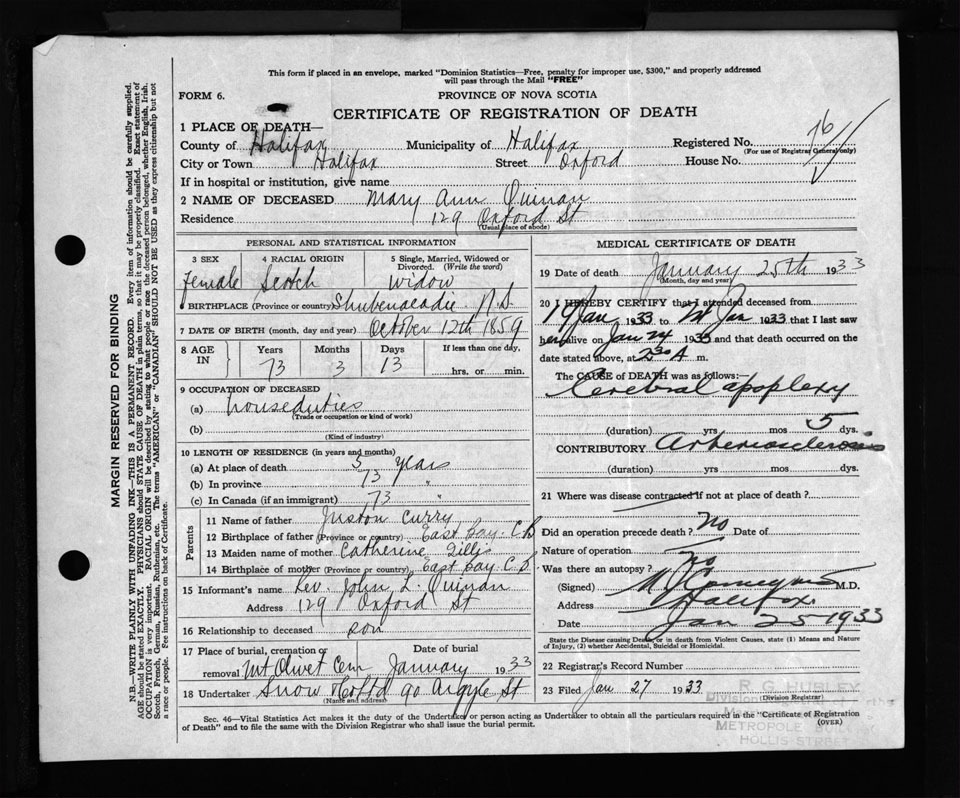 This form if placed in an envelope, marked "Dominion Statistics—Free, penalty for improper use, $300," and properly addressed
will pass through the Mail "FREE"
FORM 6.
PROVINCE OF NOVA SCOTIA
CERTIFICATE OF REGISTRATION OF DEATH
1 PLACE OF DEATH—
County of Halifax Municipality of Halifax Registered No. 76
(For use of Registrar General only)
City or Town Halifax Street Oxford House No.
If in hospital or institution, give name
2 NAME OF DECEASED Mary Ann Quinan
Residence 129 Oxford St
(Usual place of abode)
PERSONAL AND STATISTICAL INFORMATION
3 SEX 4 RACIAL ORIGIN 5 Single, Married, Widowed or Divorced. (Write the word)
Female Scotch Widow
6 BIRTHPLACE (Province or country) Shubenacadie N.S.
7 DATE OF BIRTH (month, day and year) October 12th 1859
8 AGE IN Years Months Days If less than one day,
73 3 13 hrs. or min.
9 OCCUPATION OF DECEASED
(a) houseduties
(Trade or occupation or kind of work)
(b)
(Kind of industry)
10 LENGTH OF RESIDENCE (in years and months)
(a) At place of death 5 years
(b) In province 73 "
(c) In Canada (if an immigrant) 73 "
Parents
11 Name of father Curry
12 Birthplace of father (Province or country) East Bay C.B
13 Maiden name of mother Catherine Gillis
14 Birthplace of mother (Province or country) East Bay C.B
15 Informant's name Rev. John L. Quinan
Address 129 Oxford St
16 Relationship to deceased son
17 Place of burial, cremation or removal Mt Olivet Cem Date of burial January 1933
18 Undertaker Snow & Co Ltd 90 Argyle St
(Name and address)
MEDICAL CERTIFICATE OF DEATH
19 Date of death January 25th 1933
(Month, day and year)
20 I HEREBY CERTIFY that I attended deceased from
19 Jan 1933 to Jan 1933 that I last saw
her alive on Jan 24 1933 and that death occurred on the
date stated above, at 2 30 A m.
The CAUSE of DEATH was as follows:
Cerebral apoplexy
(duration) yrs mos 5 dys.
CONTRIBUTORY Arteriosclerosis
(duration) yrs mos dys.
21 Where was disease contracted if not at place of death?
Did an operation precede death? No Date of
Nature of operation
Was there an autopsy? No
(Signed) M.D.
Address Halifax
Date Jan 25 1933
State the Disease causing Death, or in death from Violent Causes, state (1) Means and
Nature of Injury, (2) whether Accidental, Suicidal or Homicidal.
22 Registrar's Record Number
23 Filed Jan 27 1933
(Division Registrar)
R. G. HUBLEY
Division Registrar
METROPOLE BUILDING
HOLLIS STREET
Sec. 46—Vital Statistics Act makes it the duty of the Undertaker or person acting as Undertaker to obtain all the particulars required in the "Certificate of Registration
of Death" and to file the same with the Division Registrar who shall issue the burial permit. (OVER)
MARGIN RESERVED FOR BINDING
N.B.—WRITE PLAINLY WITH UNFADING INK—THIS IS A PERMANENT RECORD. Every item of information should be carefully supplied.
AGE should be stated EXACTLY. PHYSICIANS should STATE CAUSE OF DEATH in plain terms, so that it may be properly classified. Exact statement of
OCCUPATION is very important. RACIAL ORIGIN will be described by stating to what people or race the deceased person belonged, whether English, Irish,
Scotch, French, German, Russian, Ruthenian, etc. The terms "AMERICAN" or "CANADIAN" SHOULD NOT BE USED as they express citizenship but not
a race or people. See instructions on back of Certificate.